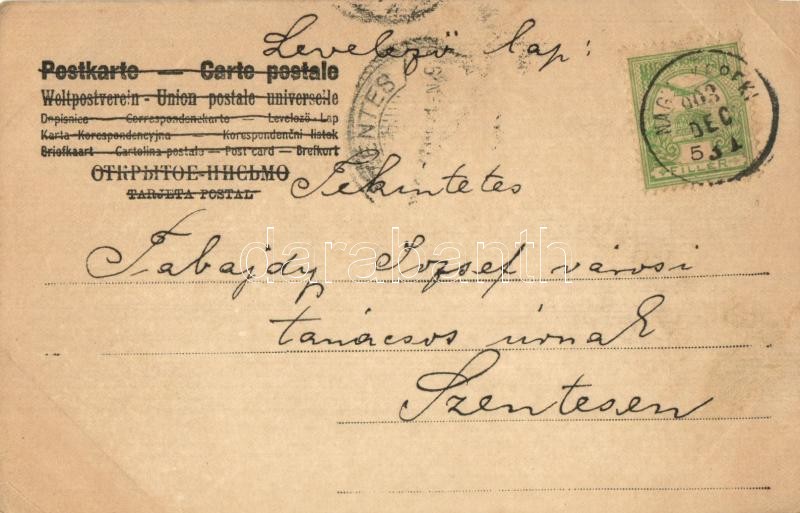 Levelező lap:
Postkarte — Carte postale
Weltpostverein - Union postale universelle
Dopisnice — Correspondenzkarte — Levelező-Lap
Karta Korespondencyjna — Korespondenčni listok
Briefkaart - Cartolina postale - Post card - Brefkort
ОТКРЫТОЕ-ПИСЬМО
TARJETA POSTAL
ENTES
903
DEC
5
FILLÉR
Tekintetes
Tabajdy József városi
tanácsos úrnak
Szentesen
darabanth